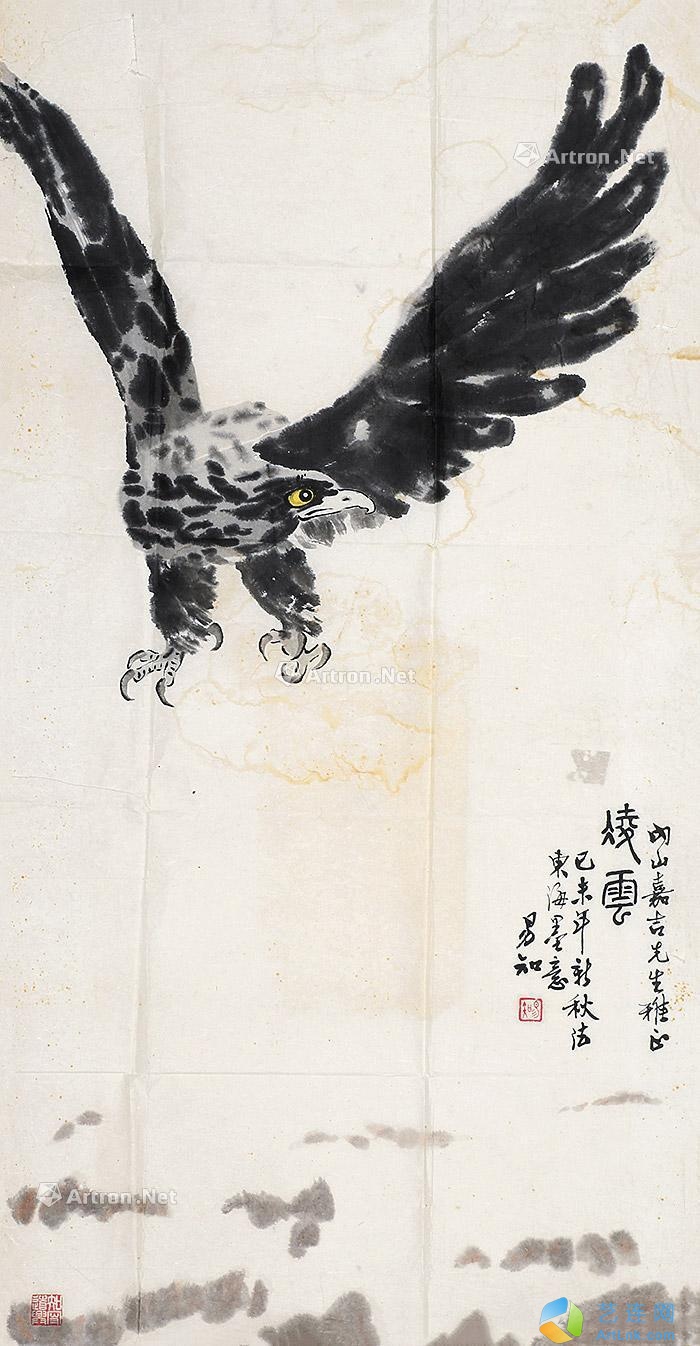 内山嘉吉先生雅正
凌雲
己未年新秋法
東海墨意
易知
Artron.Net
Artron.Net
Artron.Net
艺连网
Artlian.com